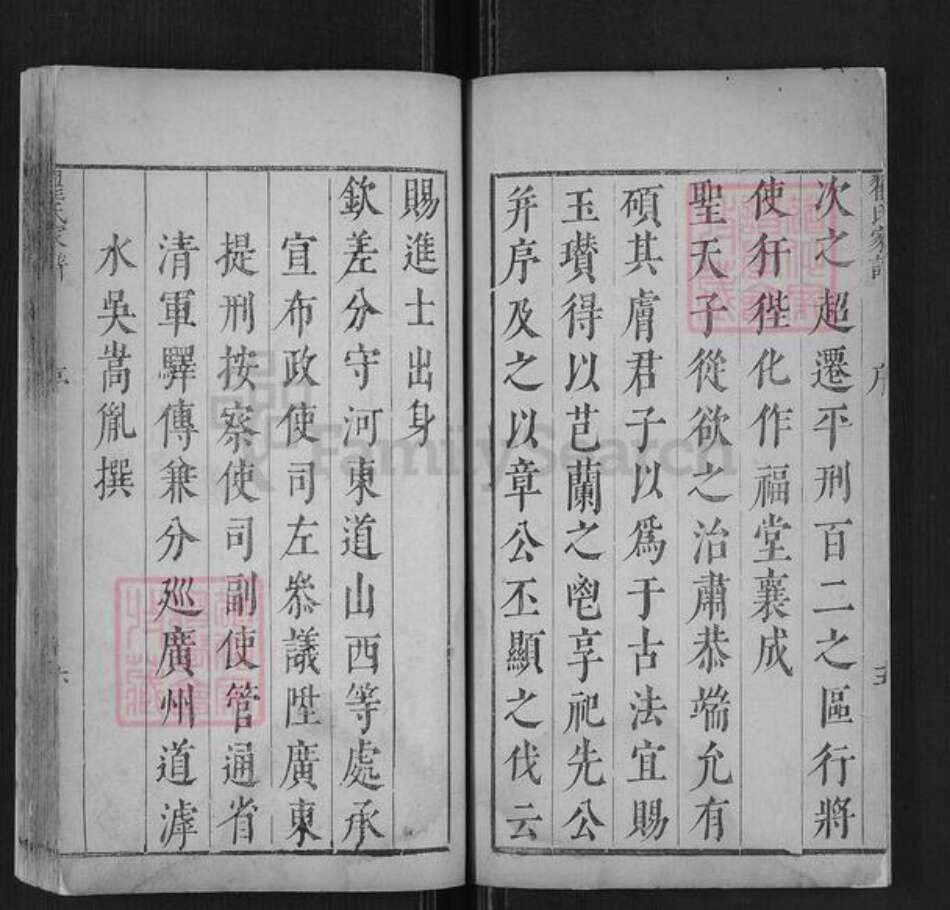 次之超遷平刑百二之區行將
使犴狴化作福堂襄成
聖天子從欲之治肅恭端允有
碩其膚君子以為于古法宜賜
玉瓚得以芑蘭之鬯享祀先公
并序及之以章公丕顯之伐云
賜進士出身
欽差分守河東道山西等處承
宣布政使司左叅議陞廣東
提刑按察使司副使管通省
清軍驛傳兼分廵廣州道滹
水吳嵩胤撰
FamilySearch